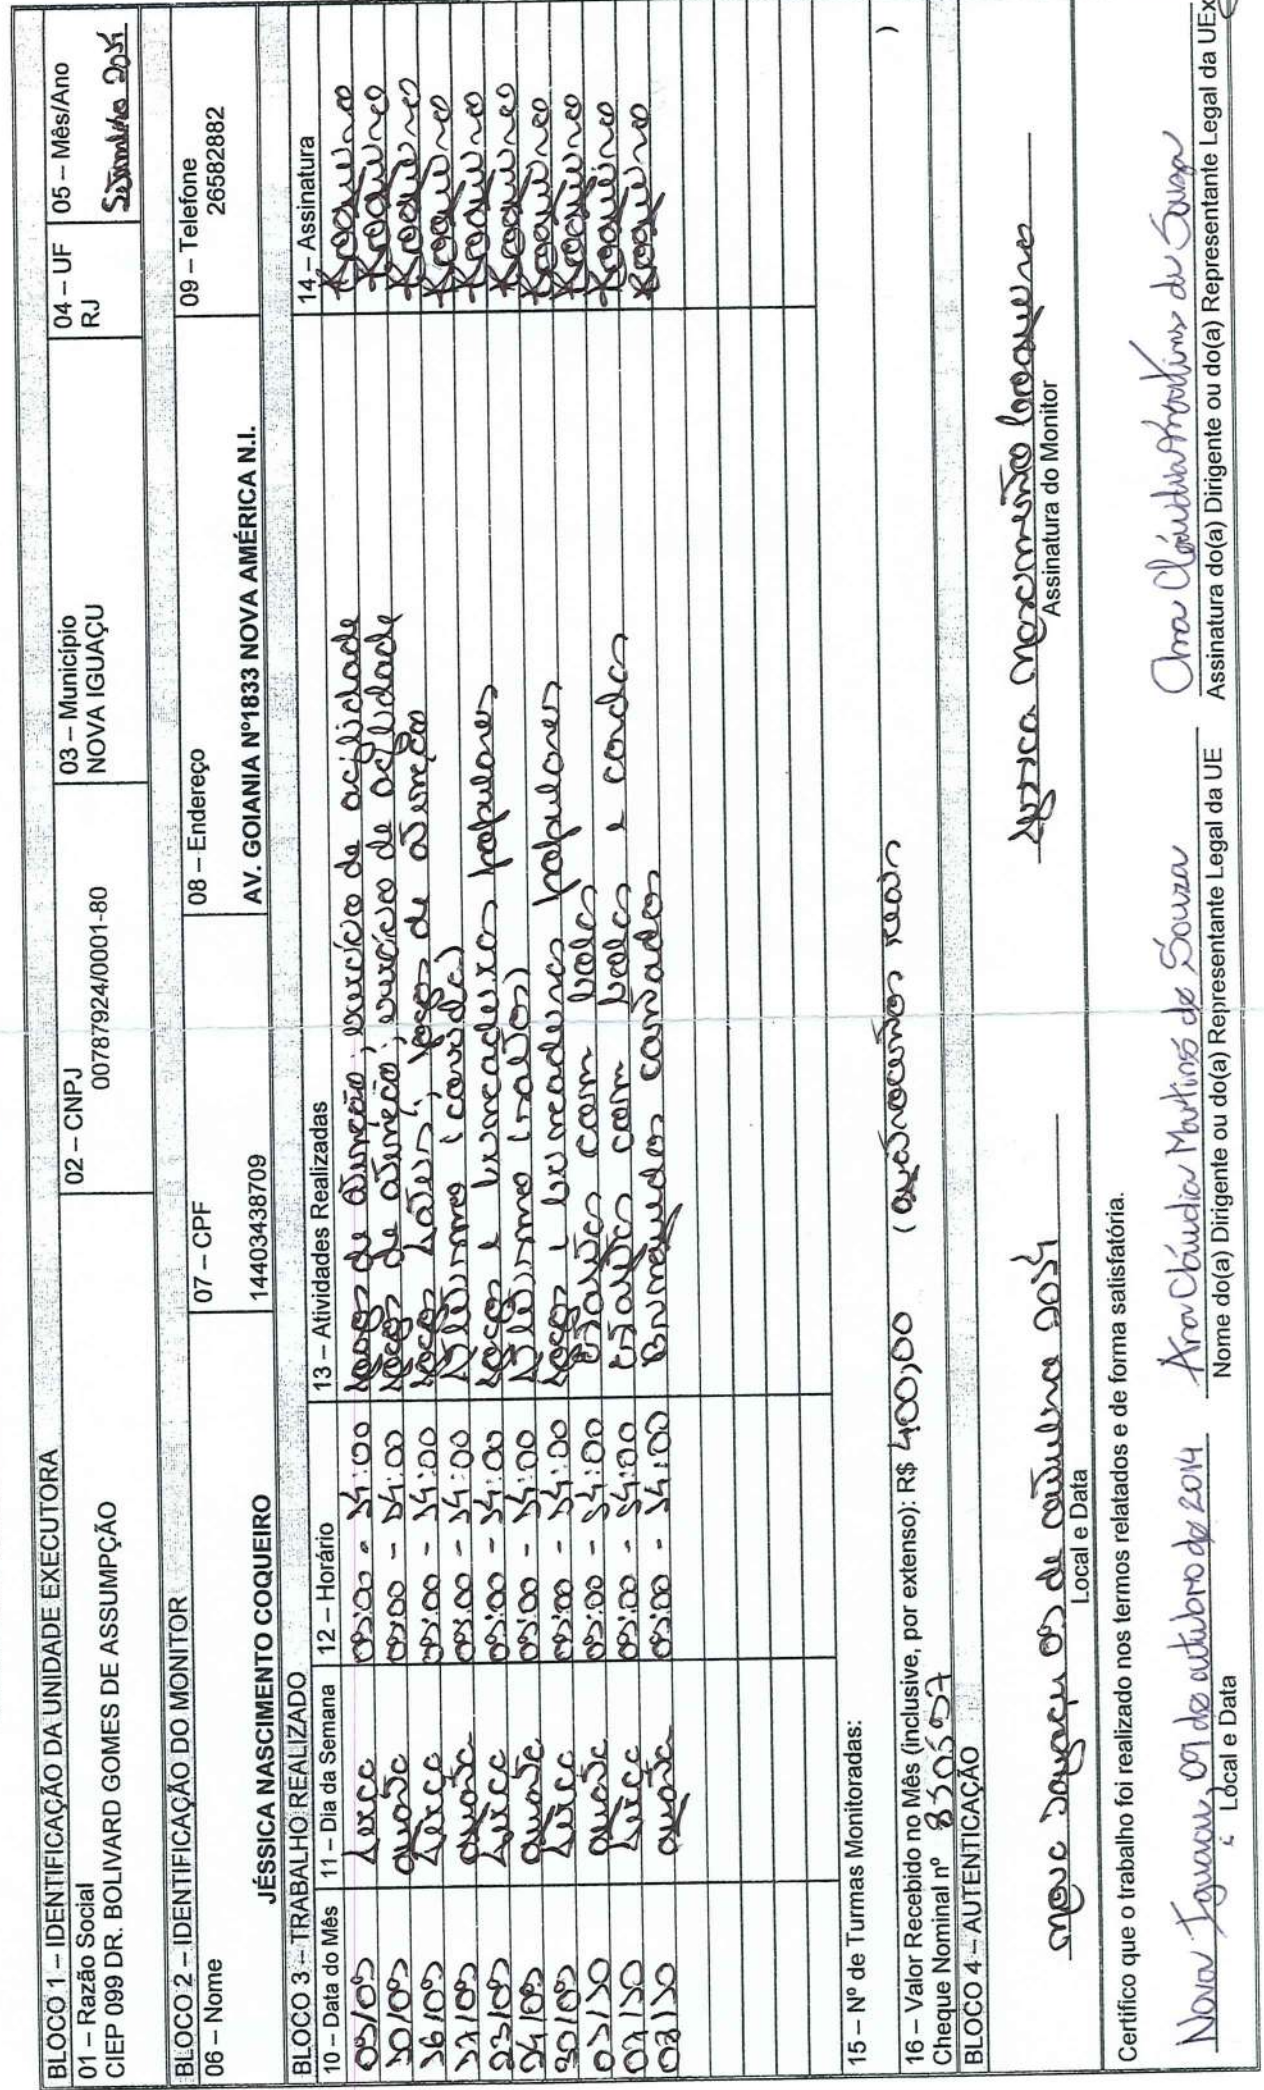 BLOCO 1 – IDENTIFICAÇÃO DA UNIDADE EXECUTORA
01 – Razão Social
CIEP 099 DR. BOLIVARD GOMES DE ASSUMPÇÃO
02 – CNPJ
00787924/0001-80
03 – Município
NOVA IGUAÇU
04 – UF
RJ
05 – Mês/Ano
Setembro 2014
BLOCO 2 – IDENTIFICAÇÃO DO MONITOR
06 – Nome
JÉSSICA NASCIMENTO COQUEIRO
07 – CPF
14403438709
08 – Endereço
AV. GOIANIA Nº1833 NOVA AMÉRICA N.I.
09 – Telefone
26582882
BLOCO 3 – TRABALHO REALIZADO
10 – Data do Mês 11 – Dia da Semana 12 – Horário 13 – Atividades Realizadas 14 – Assinatura
09/09 terça 09:00 - 14:00 Jogos de atenção, exercício de agilidade Coqueiro
10/09 quarta 09:00 - 14:00 Jogos de atenção, exercício de agilidade Coqueiro
16/09 terça 09:00 - 14:00 jogos de atenção Coqueiro
17/09 quarta 09:00 - 14:00 Atletismo (corrida) Coqueiro
23/09 terça 09:00 - 14:00 Jogos e brincadeiras populares Coqueiro
24/09 quarta 09:00 - 14:00 Atletismo (saltos) Coqueiro
30/09 terça 09:00 - 14:00 Jogos e brincadeiras populares Coqueiro
01/10 quarta 09:00 - 14:00 com bolas Coqueiro
07/10 terça 09:00 - 14:00 com bolas e cordas Coqueiro
08/10 quarta 09:00 - 14:00 Brinquedos cantados Coqueiro
15 – Nº de Turmas Monitoradas:
16 – Valor Recebido no Mês (inclusive, por extenso): R$ 400,00 (quatrocentos reais )
Cheque Nominal nº 850517
BLOCO 4 – AUTENTICAÇÃO
Nova Iguaçu 09 de outubro 2014
Local e Data
Jéssica Nascimento Coqueiro
Assinatura do Monitor
Certifico que o trabalho foi realizado nos termos relatados e de forma satisfatória.
Nova Iguaçu, 09 de outubro de 2014
Local e Data
Ana Cláudia Martins de Souza
Nome do(a) Dirigente ou do(a) Representante Legal da UE
Ana Cláudia Martins de Souza
Assinatura do(a) Dirigente ou do(a) Representante Legal da UEx